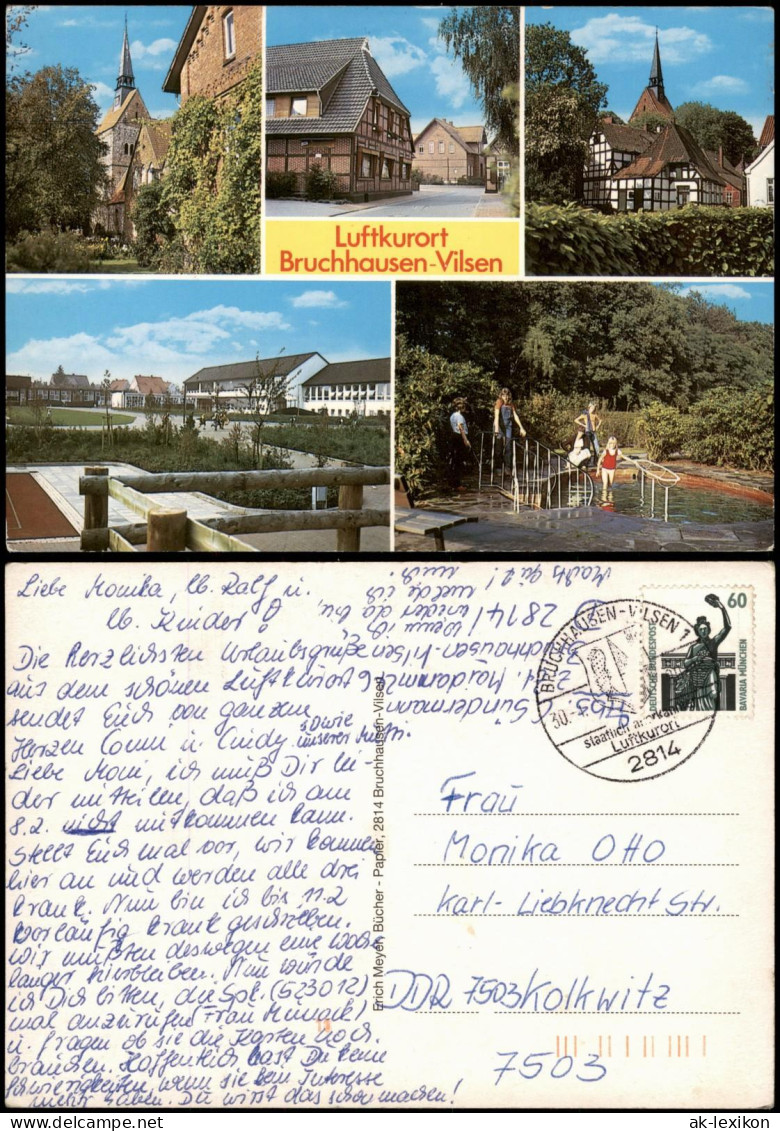 Luftkurort
Bruchhausen-Vilsen
Liebe Monika, lb. Ralf u.
lb. Kinder!
Die herzlichsten Urlaubsgrüße
aus dem schönen Luftkurort
sendet Euch von ganzem
Herzen Conni u. Cindy sowie
unserer Mutti.
Liebe Moni, ich muß Dir lei-
der mitteilen, daß ich am
8.2. nicht mitkommen kann.
Stellt Euch mal vor, wir kamen
hier an und werden alle drei
krank. Nun bin ich bis 11.2
vorläufig krank geschrieben.
Wir müßten deswegen eine Woche
länger hierbleiben. Nun würde
ich Dich bitten, die Spk. (523012)
mal anzurufen (Frau
u. fragen ob sie die Karten noch
brauchen. Hoffentlich hast Du keine
Schwierigkeiten, wenn sie kein Interesse
mehr haben. Du wirst das schon machen!
Macht's gut!
melde ich
mich.
Wenn ich wieder da bin,
2814 Bruchhausen-Vilsen
C. Sündermann
Erich Meyer, Bücher - Papier, 2814 Bruchhausen-Vilsen
BRUCHHAUSEN-VILSEN 1
30.
staatlich anerkannter
Luftkurort
2814
60
DEUTSCHE BUNDESPOST
BAVARIA MÜNCHEN
Frau
Monika Otto
Karl-Liebknecht Str.
DDR 7503 Kolkwitz
7503
ak-lexikon